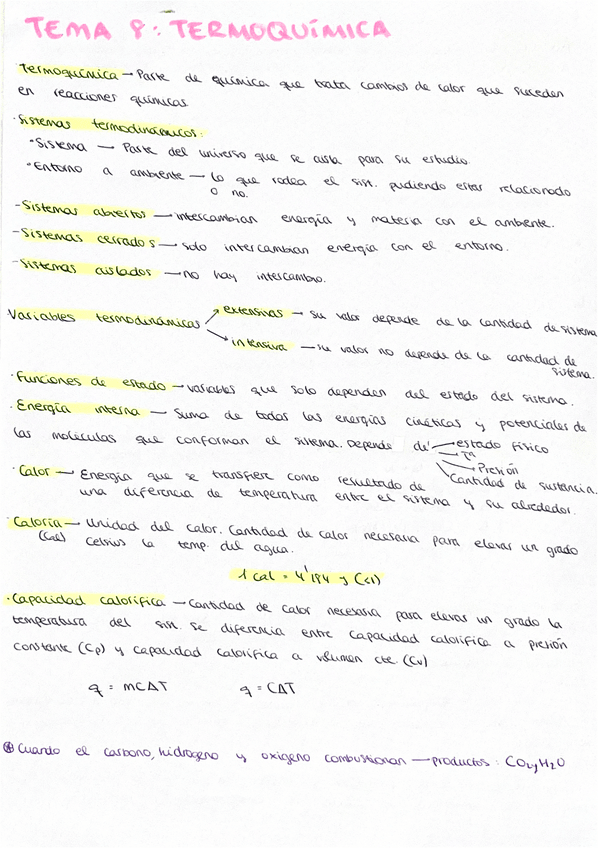 TEMA 8: TERMOQUÍMICA
·Termoquímica → Parte de química que trata cambios de calor que suceden
en reacciones químicas
·Sistemas termodinámicos:
·Sistema → Parte del universo que se aisla para su estudio.
·Entorno o ambiente → lo que rodea el sist. pudiendo estar relacionado
o no.
-Sistemas abiertos → intercambian energía y materia con el ambiente.
-Sistemas cerrados → solo intercambian energía con el entorno.
-Sistemas aislados → no hay intercambio.
Variables termodinámicas
extensivas → su valor depende de la cantidad de sistema
intensiva → su valor no depende de la cantidad de
sistema.
·Funciones de estado → variables que solo dependen del estado del sistema.
·Energía interna → Suma de todas las energías cinéticas y potenciales de
las moléculas que conforman el sistema. Depende de:
estado físico
Tª
Presión
Cantidad de sustancia.
·Calor → Energía que se transfiere como resultado de
una diferencia de temperatura entre el sistema y su alrededor.
·Caloría → Unidad del calor. Cantidad de calor necesaria para elevar un grado
(Cal) Celsius la temp. del agua.
1 cal = 4'184 J (SI)
·Capacidad calorífica → Cantidad de calor necesaria para elevar un grado la
temperatura del sist. Se diferencia entre capacidad calorífica a presión
constante (Cp) y capacidad calorífica a volumen cte. (Cv)
q = mCΔT q = CΔT
* Cuando el carbono, hidrogeno y oxigeno combustionan → productos: CO₂ y H₂O